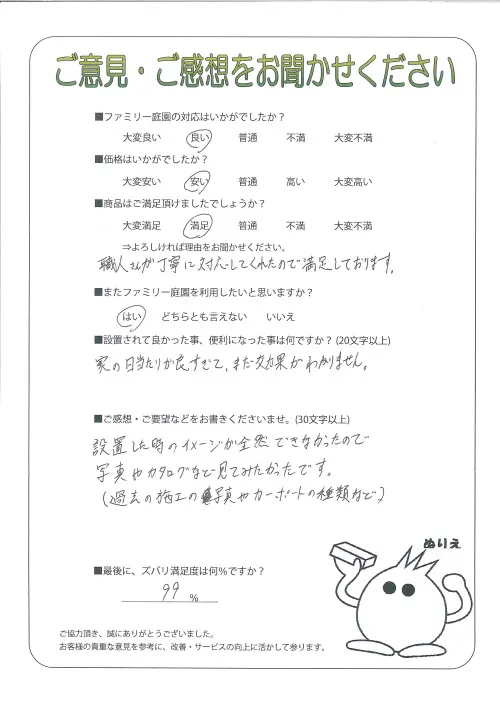 ご意見・ご感想をお聞かせください
■ファミリー庭園の対応はいかがでしたか？
大変良い 良い 普通 不満 大変不満
■価格はいかがでしたか？
大変安い 安い 普通 高い 大変高い
■商品はご満足頂けましたでしょうか？
大変満足 満足 普通 不満 大変不満
⇒よろしければ理由をお聞かせください。
職人さんが丁寧に対応してくれたので満足しております。
■またファミリー庭園を利用したいと思いますか？
はい どちらとも言えない いいえ
■設置されて良かった事、便利になった事は何ですか？(20文字以上)
家の日当たりが良すぎて、まだ効果がわかりません。
■ご感想・ご要望などをお書きくださいませ。(30文字以上)
設置した時のイメージが全然できなかったので
写真やカタログなど見てみたかったです。
(過去の施工の写真やカーポートの種類など)
ぬりえ
■最後に、ズバリ満足度は何％ですか？
99 %
ご協力頂き、誠にありがとうございました。
お客様の貴重な意見を参考に、改善・サービスの向上に活かして参ります。